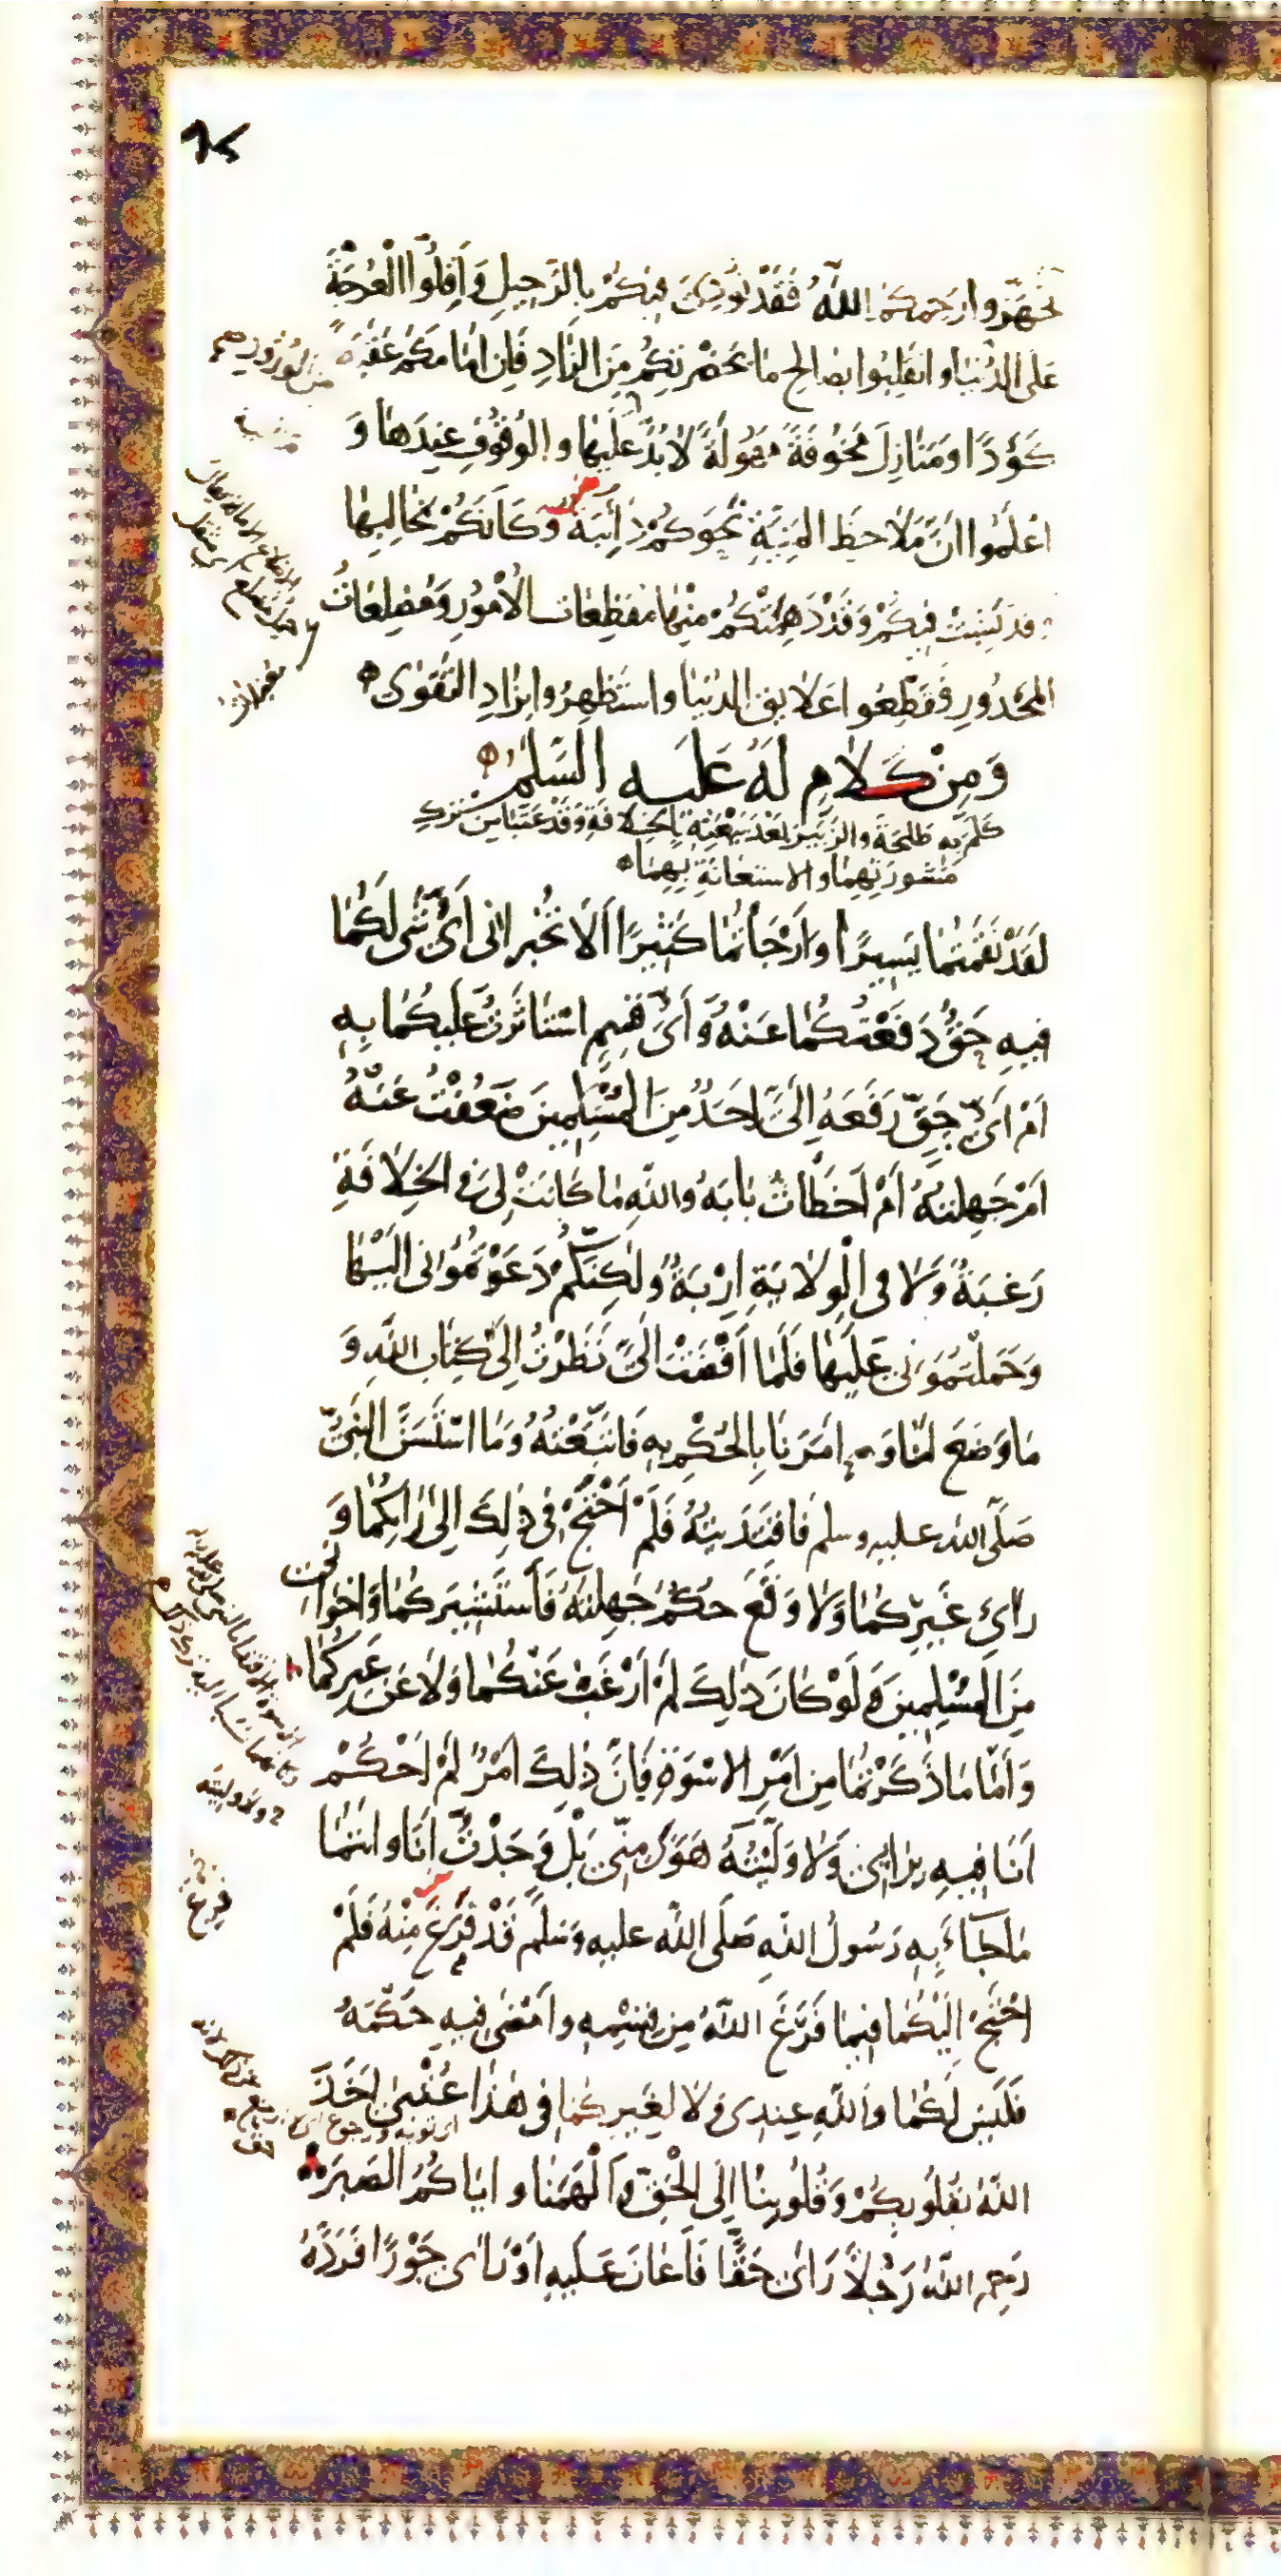 تَجَهَّزُوا رَحِمَكُمُ اللّٰهُ فَقَدْ نُودِيَ فِيكُمْ بِالرَّحِيلِ وَأَقِلُّوا الْعُرْجَةَ
عَلَى الدُّنْيَا وانقَلِبُوا بصَالِحِ مَا بحَضْرَتِكُمْ مِنَ الزَّادِ فَإِن امَامَكُمْ عَقَبَةً
كَؤُدًا وَمَنَازِلَ مَخُوفَةً مَهُولَةً لَا بُدَّ عَلَيْهَا والوُقُوفِ عِندَهَا وَ
اعْلَمُوا انَّ مَلَاحِظَ المَنِيَّةِ نَحْوَكُمْ دَائِبَةٌ وَكَانَكُمْ بمَخَالِبِهَا
وقد نَشِبَتْ فِيكُمْ وَقَدْ دَهِمَتْكُمْ مِنْهَا مُفظِعَات الْأُمُورِ وَمُضْلِعَاتُ
المَحْذُورِ فَقَطِّعُوا عَلَايِقَ الدُّنْيَا واستَظْهِرُوا بِزَادِ التَّقْوَى
وَمِنْ كَلَامٍ لَهُ عَلَيهِ السَّلٰم
كَلَّمَ بِهِ طَلحَةَ والزُّبَيْرَ بَعْدَ بَيْعَتِهِ بِالخِلَافَةِ وَقَدْ عَتَبَا مِن تَرْكِ
مَشُورَتِهِمَا والاسْتِعَانَةِ بِهِمَا
لَقَدْ نَقَمْتُمَا يَسِيرًا وَارْجَأْتُمَا كَثِيرًا أَلَا تُخْبِرَانِي أَيُّ شَيْءٍ لَكُمَا
فِيهِ حَقٌّ دَفَعْتُكُمَا عَنْهُ وَأَيُّ قَسْمٍ اسْتَاثَرْتُ عَلَيْكُمَا بِهِ
اَمْ اَيُّ حَقٍّ رَفَعَهُ اِلَيَّ اَحَدٌ مِنَ الْمُسْلِمِينَ ضَعُفْتُ عَنْهُ
اَمْ جَهِلْتُهُ اَمْ اَخطَاتُ بَابَهُ واللهِ مَا كَانَتْ لِي فِي الخِلَافَةِ
رَغْبَةٌ وَلَا فِي الْوِلَايَةِ اِرْبَةٌ وَلٰكِنَّكُمْ دَعَوْتُمُونِي اِلَيْهَا
وَحَمَلْتُمُونِي عَلَيْهَا فَلَمَّا اَفْضَتْ اِلَيَّ نَظَرْتُ اِلَى كِتَابِ اللهِ وَ
مَا وَضَعَ لَنَا وَ امَرَنَا بِالحُكْمِ بِهِ فَاتَّبَعْتُهُ وَمَا اسْتَسَنَّ النَّبِيُّ
صَلَّى الله عليه وسلم فَاقْتَدَيْتُهُ فَلَمْ اَحْتَجْ فِي ذٰلِكَ اِلَى رَايِكُمَا وَ
رَاْيِ غَيْرِكُمَا وَلَا وَقَعَ حُكْمٌ جَهِلْتُهُ فَأَسْتَشِيرَكُمَا وَاخْوَانِي
مِنَ الْمُسْلِمِينَ وَلَوْ كَانَ ذٰلِكَ لَمْ اَرْغَبْ عَنْكُمَا وَلَا عَنْ غَيْرِكُمَا
وَاَمَّا مَا ذَكَرْتُمَا مِن اَمْرِ الاسْوَةِ فَاِنَّ ذٰلِكَ اَمْرٌ لَمْ اَحْكُمْ
اَنَا فِيهِ بِرَايِي وَلَا وَلِيتُهُ هَوًى مِنِّي بَلْ وَجَدْتُ اَنَا وانتُمَا
مَا جَاءَ بِهِ رَسُولُ اللهِ صَلَّى اللهُ عليه وَسَلَّم قَدْ فُرِغَ مِنْهُ فَلَمْ
اَحْتَجْ اِلَيْكُمَا فِيمَا فَرَغَ اللهُ مِن قِسْمِهِ وامْضَى فِيهِ حُكْمَهُ
فَلَيْسَ لَكُمَا واللهِ عِندِي وَلَا لِغَيْرِكُمَا فِي هٰذَا عُتْبَى اَخَذَ
اللهُ بِقُلُوبِكُمْ وَقُلُوبِنَا اِلَى الْحَقِّ وَاَلْهَمَنَا وايَاكُمُ الصَّبرَ
رَحِمَ اللهُ رَجُلًا رَاى حَقًّا فَاَعَانَ عَلَيْهِ اَوْ رَاى جَوْرًا فَرَدَّهُ